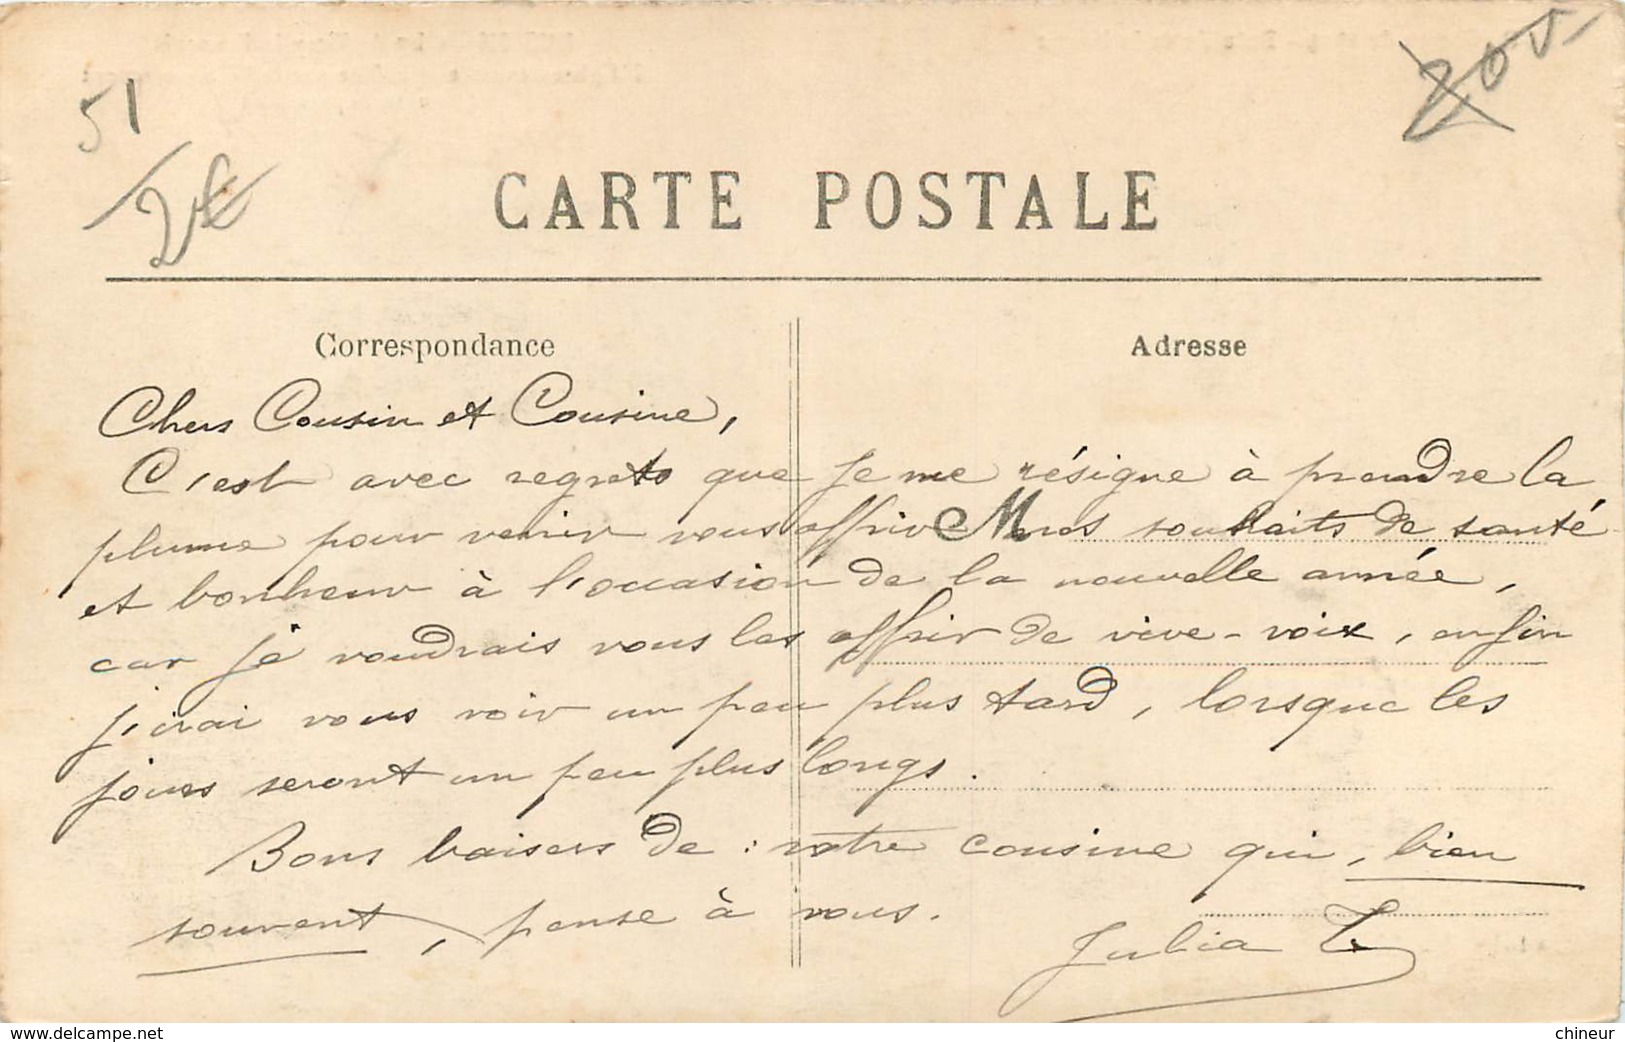 51
2€
200
CARTE POSTALE
Correspondance
Adresse
Chers Cousin et Cousine,
C'est avec regrets que je me résigne à prendre la
plume pour venir vous offrir M mes souhaits de santé
et bonheur à l'occasion de la nouvelle année,
car je voudrais vous les offrir de vive-voix, enfin
j'irai vous voir un peu plus tard, lorsque les
jours seront un peu plus longs.
Bons baisers de : votre cousine qui, bien
souvent, pense à vous.
Julia T
www.delcampe.net
chineur